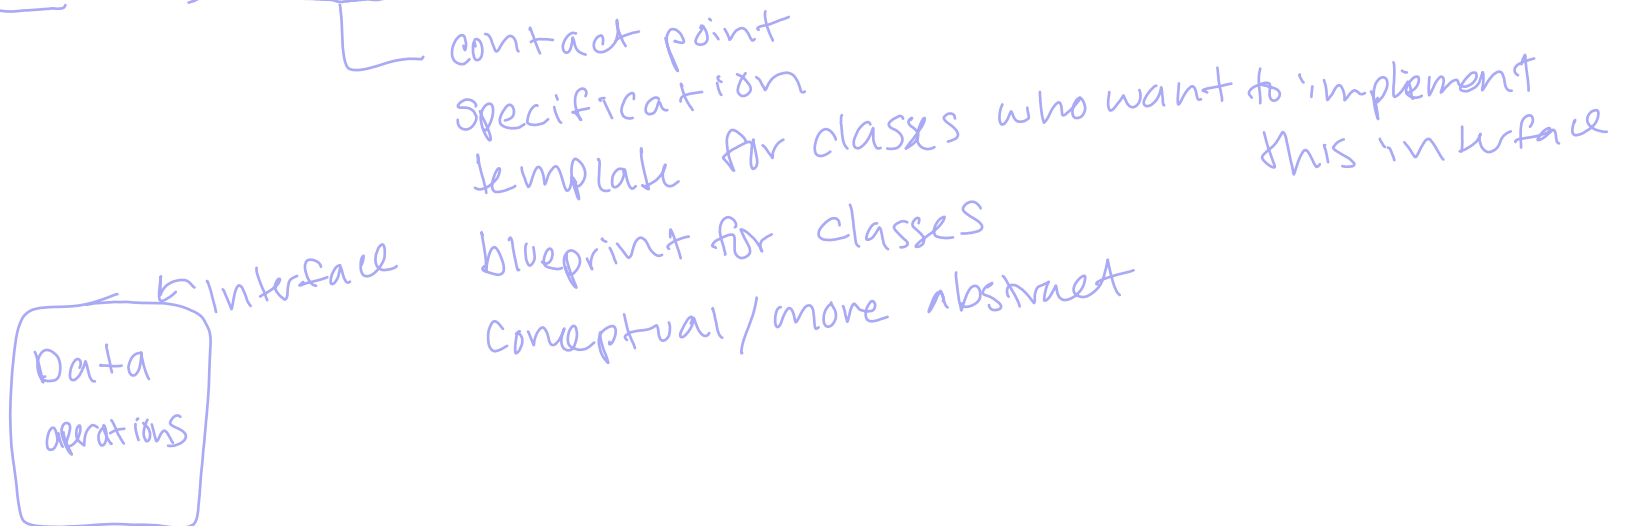 contact point
specification
template for classes who want to implement
this interface
blueprint for classes
Interface
conceptual/more abstract
Data
operations